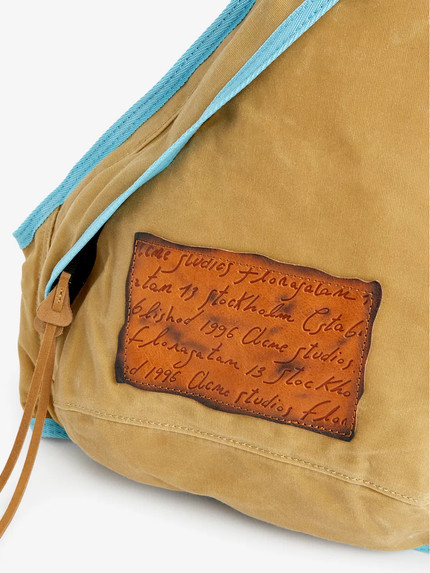 cme studios floragatan 1
atan 13 stockholm Estab
blished 1996 Acme studios
floragatan 13 stockho
d 1996 Acme studios flor